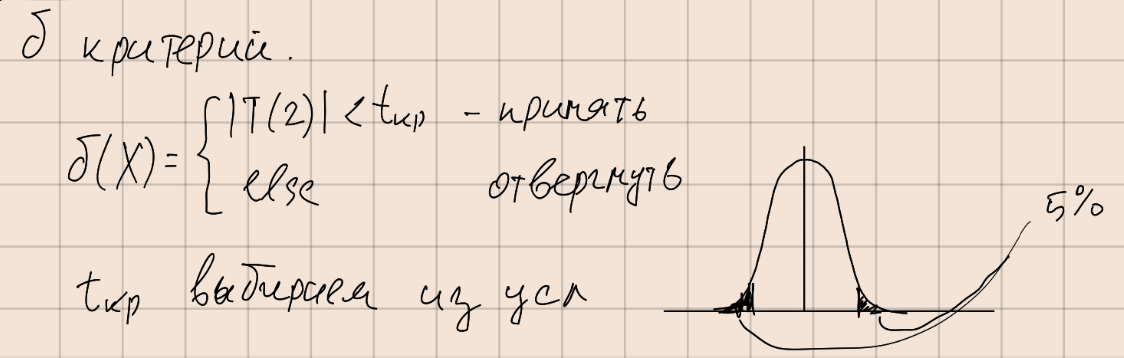 δ критерий.
δ(X) = { |T(2)| < tкр - принять
else отвергнуть
5%
tкр выбираем из усл